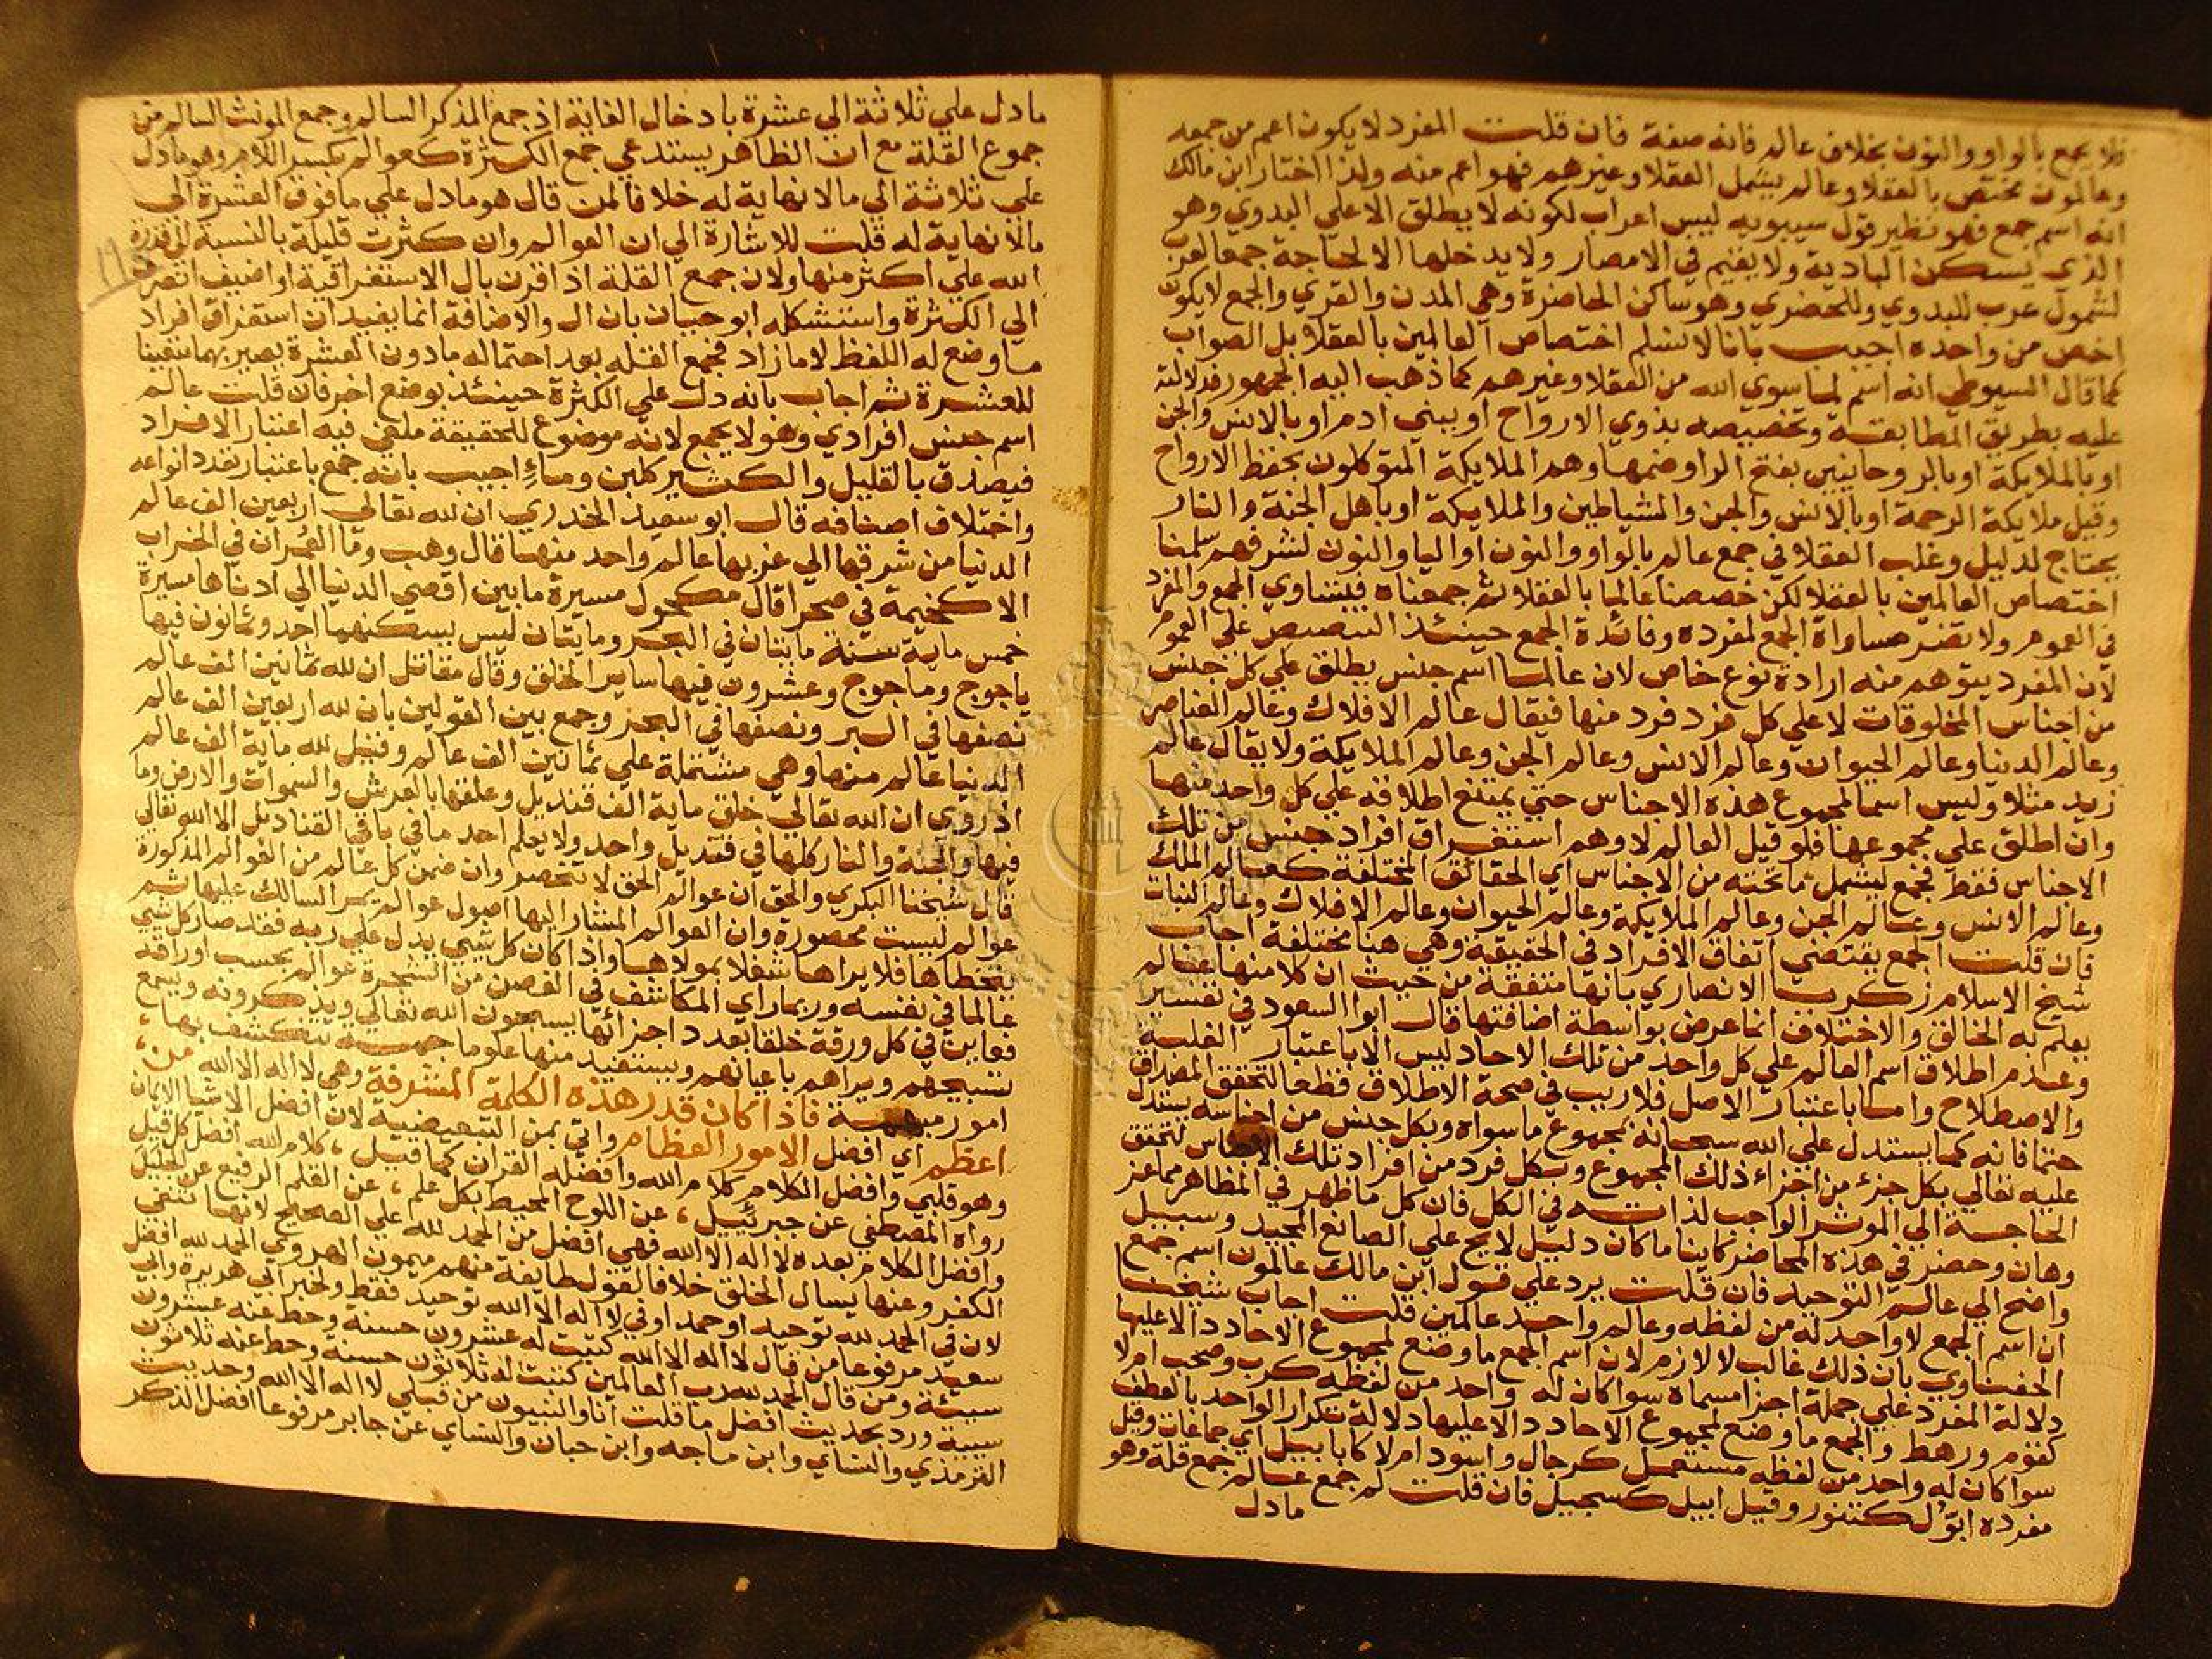 فلا يجمع بالواو والنون بخلاف عالم فانه صفة فان قلت المفرد لا يكون اعم من جمعه
وعالمون مختص بالعقلا وعالم يشمل العقلا وغيرهم فهو اعم منه ولذا اختار ابن مالك
انه اسم جمع فهو نظير قول سيبويه ليس اعراب لكونه لا يطلق الا علي البدوي وهو
الذي يسكن البادية ولا يقيم في الامصار ولا يدخلها الا لحاجة جمعا لعرب
لشمول عرب للبدوي وللحضري وهو ساكن الحاضرة وهي المدن والقري والجمع لا يكون
اخص من واحده اجيب بانا لا نسلم اختصاص العالمين بالعقلا بل الصواب
كما قال السيوطي انه اسم لما سوي الله من العقلا وغيرهم كما ذهب اليه الجمهور فدلالته
عليه بطريق المطابقة وتخصيصه بذوي الارواح او ببني ادم او بالانس والجن
او بالملايكة او بالروحانيين بفتح الرا وضمها وهم الملايكة المتوكلون بحفظ الارواح
وقيل ملايكة الرحمة او بالانس والجن والشياطين والملايكة او باهل الجنة والنار
يحتاج لدليل وغلب العقلا في جمع عالم بالواو والنون او اليا والنون لشرفهم سلمنا
اختصاص العالمين بالعقلا لكن خصصنا عالما بالعقلا ثم جمعناه فيتساوي الجمع والمفرد
في العموم ولا تضر مساواة الجمع لمفرده وفائدة الجمع حينئذ التنصيص علي العموم
لان المفرد يتوهم منه ارادة نوع خاص لان عالما اسم جنس يطلق علي كل جنس
من اجناس المخلوقات لا علي كل فرد فرد منها فيقال عالم الافلاك وعالم العناصر
وعالم الدنيا وعالم الحيوان وعالم الانس وعالم الجن وعالم الملايكة ولا يقال عالم
زيد مثلا وليس اسما لمجموع هذه الاجناس حتي يمتنع اطلاقه علي كل واحد منها
وان اطلق علي مجموعها فلو قيل العالم لاوهم استغراق افراد جنس من تلك
الاجناس فقط فجمع ليشمل ما تحته من الاجناس اي الحقائق المختلفة كعالم الملك
وعالم الانس وعالم الجن وعالم الملايكة وعالم الحيوان وعالم الافلاك وعالم النبات
فان قلت الجمع يقتضي اتفاق الافراد في الحقيقة وهي هنا مختلفة اجاب
شيخ الاسلام زكريا الانصاري بانها متفقة من حيث ان كلا منها عالم
يعلم به الخالق والاختلاف انما عرض بواسطة اضافتها قال ابوا السعود في تفسير
وعدم اطلاق اسم العالم علي كل واحد من تلك الاحاد ليس الا باعتبار الغلبة
والاصطلاح واما باعتبار الاصل فلا ريب في صحة الاطلاق قطعا لتحقق المصداق
حتما فانه كما يستدل علي الله سبحانه بمجموع ما سواه وبكل جنس من اجناسه يستدل
عليه تعالي بكل جزء من اجزاء ذلك المجموع وبكل فرد من افراد تلك الاجناس لتحقق
الحاجة الي الموثر الواجب لذاته في الكل فان كل ما ظهر في المظاهر مما عز
وهان وحضر في هذه المحاضر كاينا ما كان دليل لايح علي الصانع المجيد وسبيل
واضح الي عالم التوحيد فان قلت يرد علي قول ابن مالك عالمون اسم جمع
ان اسم الجمع لا واحد له من لفظه وعالم واحد عالمين قلت اجاب شيخنا
الحفناوي بان ذلك غالب لا لازم لان اسم الجمع ما وضع لمجموع الاحاد دالا عليها
دلالة المفرد علي جملة اجزا مسماه سوا كان له واحد من لفظه كركب وصحب ام لا
كقوم ورهط والجمع ما وضع لمجموع الاحاد دالا عليها دلالة تكرار الواحد بالعطف
سوا كان له واحد من لفظه مستعمل كرجال واسود ام لا كابابيل اي جماعات وقيل
مفرده ابول كتنور وقيل ابيل كسجيل فان قلت لم جمع عالم جمع قلة وهو
ما دل
ما دل علي ثلاثة الي عشرة بادخال الغاية اذ جمع المذكر السالم وجمع المونث السالم من
جموع القلة مع ان الظاهر يستدعي جمع الكثرة كعوالم بكسر اللام وهو ما دل
علي ثلاثة الي ما لا نهاية له خلافا لمن قال هو ما دل علي ما فوق العشرة الي
ما لا نهاية له قلت للاشارة الي ان العوالم وان كثرت قليلة بالنسبة لقدرة
الله علي اكثر منها ولان جمع القلة اذا قرن بال الاستغراقية او اضيف انصرف
الي الكثرة واستشكله ابو حيان بان ال والاضافة انما يفيدان استغراق افراد
ما وضع له اللفظ لا ما زاد فجمع القلة بعد احتماله ما دون العشرة يصير بهما متعينا
للعشرة ثم اجاب بانه دل علي الكثرة حينئذ بوضع اخر فان قلت عالم
اسم جنس افرادي وهو لا يجمع لانه موضوع للحقيقة ملغي فيه اعتبار الافراد
فيصدق بالقليل والكثير كلبن وماء اجيب بانه جمع باعتبار تعدد انواعه
واختلاف اصنافه قال ابو سعيد الخدري ان لله تعالي اربعين الف عالم
الدنيا من شرقها الي غربها عالم واحد منها قال وهب وما العمران في الخراب
الا كخيمة في صحرا قال مكحول مسيرة ما بين اقصي الدنيا الي ادناها مسيرة
خمس ماية سنة مايتان في البحر ومايتان ليس يسكنهما احد وثمانون فيها
ياجوج وماجوج وعشرون فيها ساير الخلق وقال مقاتل ان لله ثمانين الف عالم
نصفها في البر ونصفها في البحر وجمع بين القولين بان لله اربعين الف عالم
الدنيا عالم منها وهي مشتملة علي ثمانين الف عالم وقيل لله ماية الف عالم
اذ روي ان الله تعالي خلق ماية الف قنديل وعلقها بالعرش والسموات والارض وما
فيها والجنة والنار كلها في قنديل واحد ولا يعلم احد ما في باقي القناديل الا الله تعالي
قال شيخنا البكري والحق ان عوالم الحق لا تنحصر وان ضمن كل عالم من العوالم المذكورة
عوالم ليست محصورة وان العوالم المشار اليها اصول عوالم يمر السالك عليها ثم
يتخطاها فلا يراها شغلا بمولاها واذا كان كل شيي يدل علي ربه فقد صار كل شيي
عالما في نفسه وربما راي المكاشف في الغصن من الشجرة عوالم بحسب اوراقه
فعاين في كل ورقة خلقا بعدد اجزائها يسبحون الله تعالي ويذكرونه ويسمع
تسبيحهم ويراهم باعيانهم ويستفيد منها علوما جهة تنكشف بها
امور مبهمة فاذا كان قدر هذه الكلمة المشرفة وهي لا اله الا الله من
اعظم اي افضل الامور العظام واتي بمن التبعيضية لان افضل الاشيا الايمان
وهو قلبي وافضل الكلام كلام الله وافضله القران كما قيل كلام الله افضل كل قيل
رواه المصطفي عن جبرئيل عن اللوح المحيط بكل علم عن القلم الرفيع عن الجليل
وافضل الكلام بعده لا اله الا الله فهي افضل من الحمد لله علي الصحيح لانها تنفي
الكفر وعنها يسال الخلق خلافا لقول طايفة منهم ميمون الهروي الحمد لله افضل
لان في الحمد لله توحيد او حمدا وفي لا اله الا الله توحيد فقط ولخبر ابي هريرة وابي
سعيد مرفوعا من قال لا اله الا الله كتبت له عشرون حسنة وحط عنه عشرون
سيئة ومن قال الحمد لله رب العالمين كتبت له ثلاثون حسنة وحط عنه ثلاثون
سيية ورد بحديث افضل ما قلت انا والنبيون من قبلي لا اله الا الله وحديث
الترمذي والنساي وابن ماجه وابن حبان والنساي عن جابر مرفوعا افضل الذكر